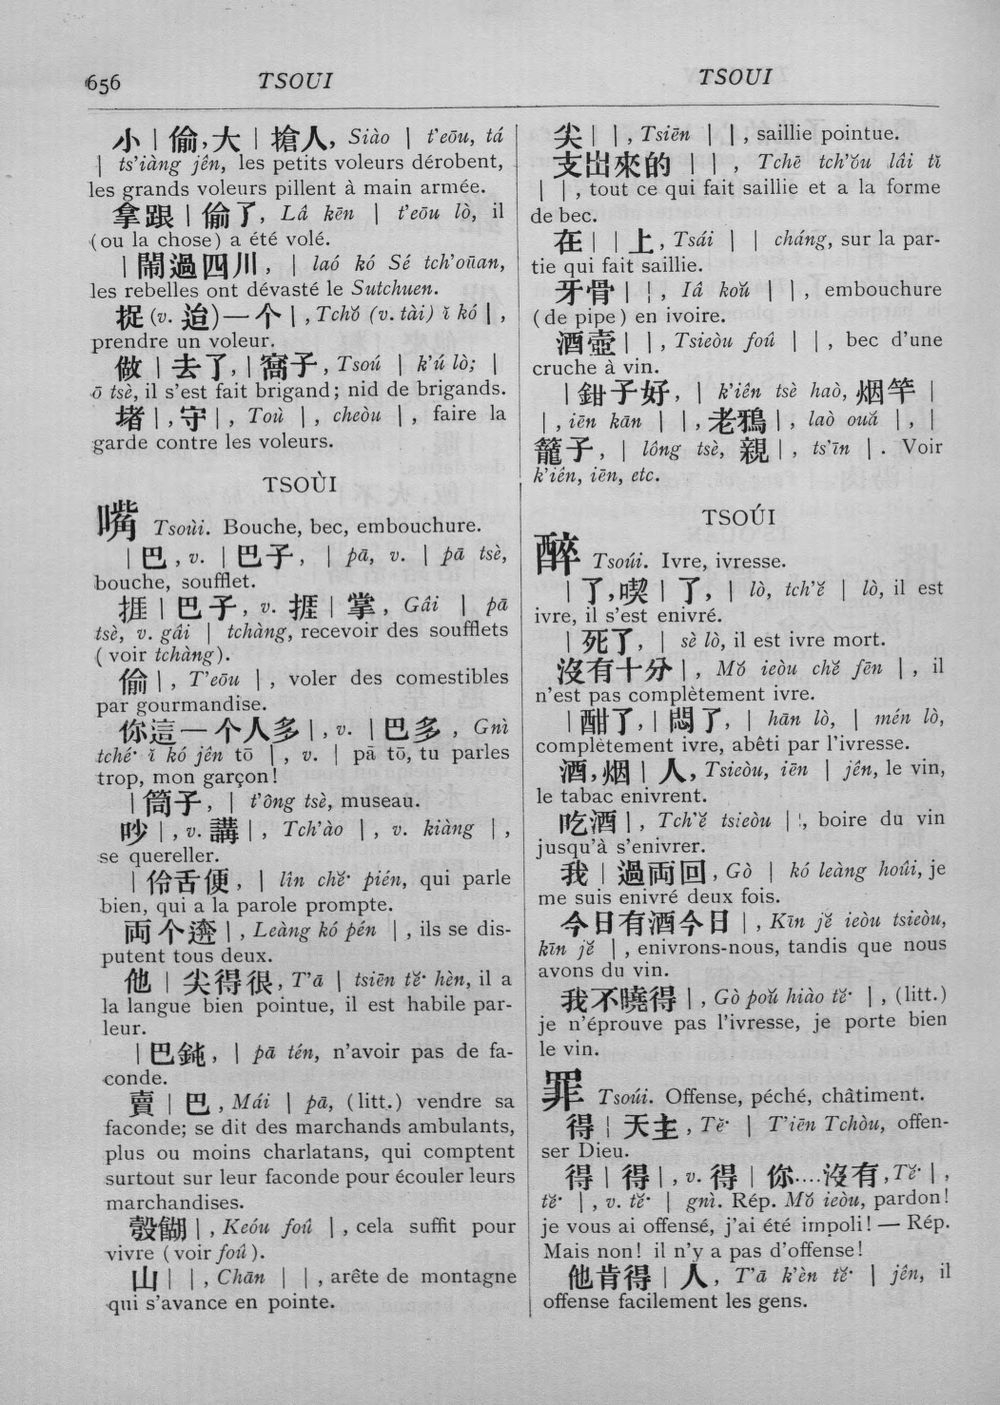 656 TSOUI TSOUI
小 | 偷,大 | 搶人, Siào | t'eōu, tá
| ts'iàng jên, les petits voleurs dérobent,
les grands voleurs pillent à main armée.
拿跟 | 偷了, Lâ kēn | t'eōu lò, il
(ou la chose) a été volé.
| 鬧過四川, | laó kó Sé tch'oūan,
les rebelles ont dévasté le Sutchuen.
捉 (v. 迨) 一个 |, Tchŏ (v. tài) ĭ kó |,
prendre un voleur.
做 | 去了, | 窩子, Tsoú | k'ú lò; |
ō tsè, il s'est fait brigand; nid de brigands.
堵 |, 守 |, Toù |, cheòu |, faire la
garde contre les voleurs.
TSOÙI
嘴 Tsoùi. Bouche, bec, embouchure.
| 巴, v. | 巴子, | pā, v. | pā tsè,
bouche, soufflet.
捱 | 巴子, v. 捱 | 掌, Gâi | pā
tsè, v. gâi | tchàng, recevoir des soufflets
(voir tchàng).
偷 |, T'eōu |, voler des comestibles
par gourmandise.
你這一个人多 |, v. | 巴多, Gnì
tché· ĭ kó jên tō |, v. | pā tō, tu parles
trop, mon garçon!
| 筒子, | t'ông tsè, museau.
吵 |, v. 講 |, Tch'ào |, v. kiàng |,
se quereller.
| 伶舌便, | lîn chĕ· pién, qui parle
bien, qui a la parole prompte.
両个 |, Leàng kó pén |, ils se dis-
putent tous deux.
他 | 尖得很, T'ā | tsiēn tĕ· hèn, il a
la langue bien pointue, il est habile par-
leur.
| 巴鈍, | pā tén, n'avoir pas de fa-
conde.
賣 | 巴, Mái | pā, (litt.) vendre sa
faconde; se dit des marchands ambulants,
plus ou moins charlatans, qui comptent
surtout sur leur faconde pour écouler leurs
marchandises.
彀餬 |, Keóu foû |, cela suffit pour
vivre (voir foû).
山 | |, Chān | |, arête de montagne
qui s'avance en pointe.
尖 | |, Tsiēn | |, saillie pointue.
支出來的 | |, Tchē tch'ŏu lâi tĭ
| |, tout ce qui fait saillie et a la forme
de bec.
在 | | 上, Tsái | | cháng, sur la par-
tie qui fait saillie.
牙骨 | |, Iâ koŭ | |, embouchure
(de pipe) en ivoire.
酒壺 | |, Tsieòu foû | |, bec d'une
cruche à vin.
| 鉗子好, | k'iên tsè haò, 烟竿 |
|, iēn kān | |, 老鴉 |, laò ouă |, |
籠子, | lông tsè, 親 |, ts'īn |. Voir
k'iên, iēn, etc.
TSOÚI
醉 Tsoúi. Ivre, ivresse.
| 了, 喫 | 了, | lò, tch'ĕ | lò, il est
ivre, il s'est enivré.
| 死了, | sè lò, il est ivre mort.
沒有十分 |, Mŏ ieòu chĕ fēn |, il
n'est pas complètement ivre.
| 酣了, | 悶了, | hān lò, | mén lò,
complètement ivre, abêti par l'ivresse.
酒, 烟 | 人, Tsieòu, iēn | jên, le vin,
le tabac enivrent.
吃酒 |, Tch'ĕ tsieòu |, boire du vin
jusqu'à s'enivrer.
我 | 過両回, Gò | kó leàng hoûi, je
me suis enivré deux fois.
今日有酒今日 |, Kīn jĕ ieòu tsieòu,
kīn jĕ |, enivrons-nous, tandis que nous
avons du vin.
我不曉得 |, Gò poŭ hiào tĕ· |, (litt.)
je n'éprouve pas l'ivresse, je porte bien
le vin.
罪 Tsoúi. Offense, péché, châtiment.
得 | 天主, Tĕ· | T'iēn Tchòu, offen-
ser Dieu.
得 | 得 |, v. 得 | 你....沒有, Tĕ· |,
tĕ· |, v. tĕ· | gnì. Rép. Mŏ ieòu, pardon!
je vous ai offensé, j'ai été impoli! — Rép.
Mais non! il n'y a pas d'offense!
他肯得 | 人, T'ā k'èn tĕ· | jên, il
offense facilement les gens.